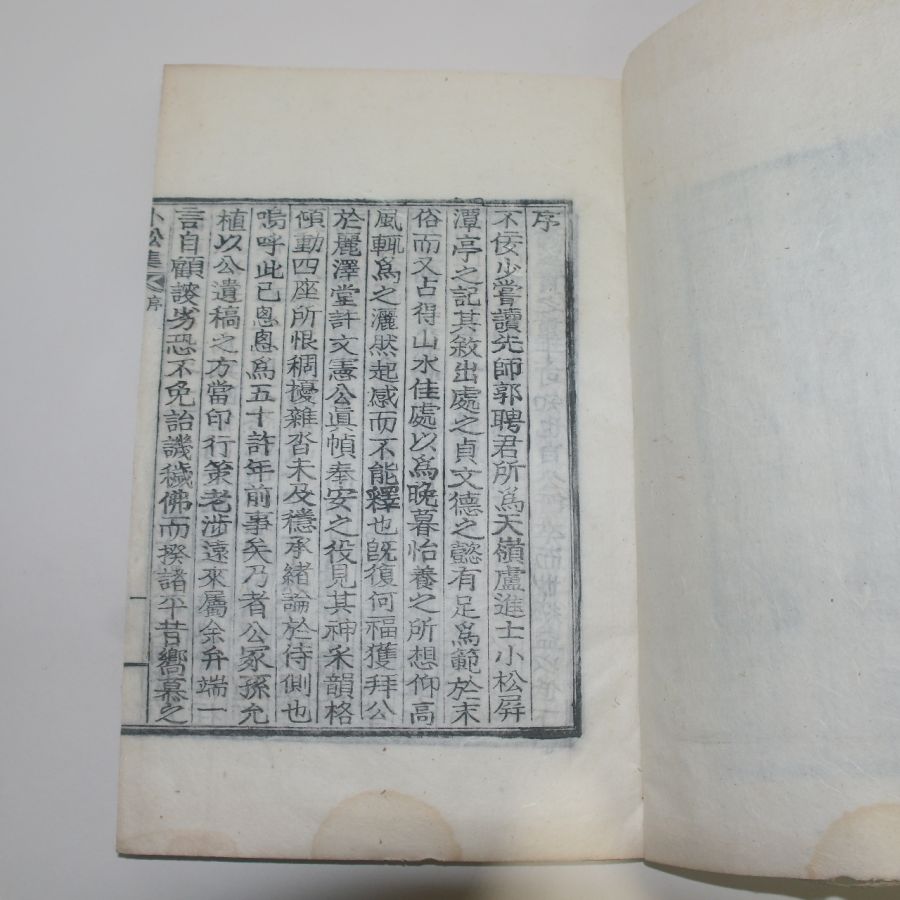 序
不佞少嘗讀先師郭聘君所爲天嶺盧進士小松屛
潭亭之記其敘出處之貞文德之懿有足爲範於末
俗而又占得山水佳處以爲晩暮怡養之所想仰高
風輒爲之灑然起感而不能釋也旣復何福獲拜公
於麗澤堂許文憲公眞幀奉安之役見其神釆韻格
傾動四座所恨稠擾雜沓未及穩承緖論於侍側也
嗚呼此已悤悤爲五十許年前事矣乃者公冢孫允
植以公遺稿之方當印行策老涉遠來屬余弁端一
言自顧謏劣恐不免詒譏穢佛而揆諸平昔嚮慕之
小松集 序